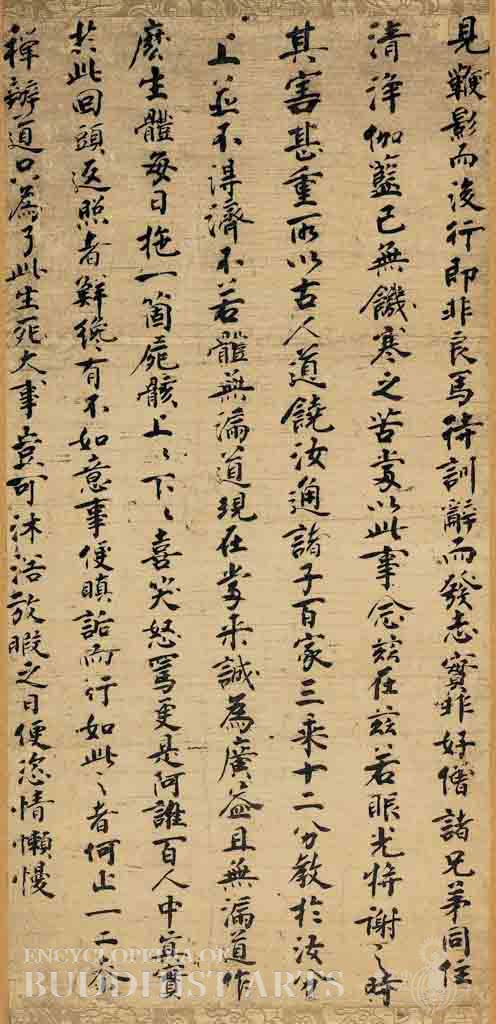 見鞭影而後行即非良馬待訓辭而發志實非好僧諸兄弟同住
清淨伽藍已無饑寒之苦當以此事念茲在茲若眼光將謝之時
其害甚重所以古人道饒汝通諸子百家三乘十二分教於汝分
上並不得濟不若體無漏道現在當來誠為廣益且無漏道作
麼生體每日拖一箇屍骸上〻下〻喜笑怒罵更是阿誰百人中真實
於此回頭返照者鮮纔有不如意事便瞋詬而行如此〻者何止一二參
禪辨道只為了此生死大事豈可沐浴放暇之日便恣情懶慢
ENCYCLOPEDIA OF
BUDDHIST ARTS